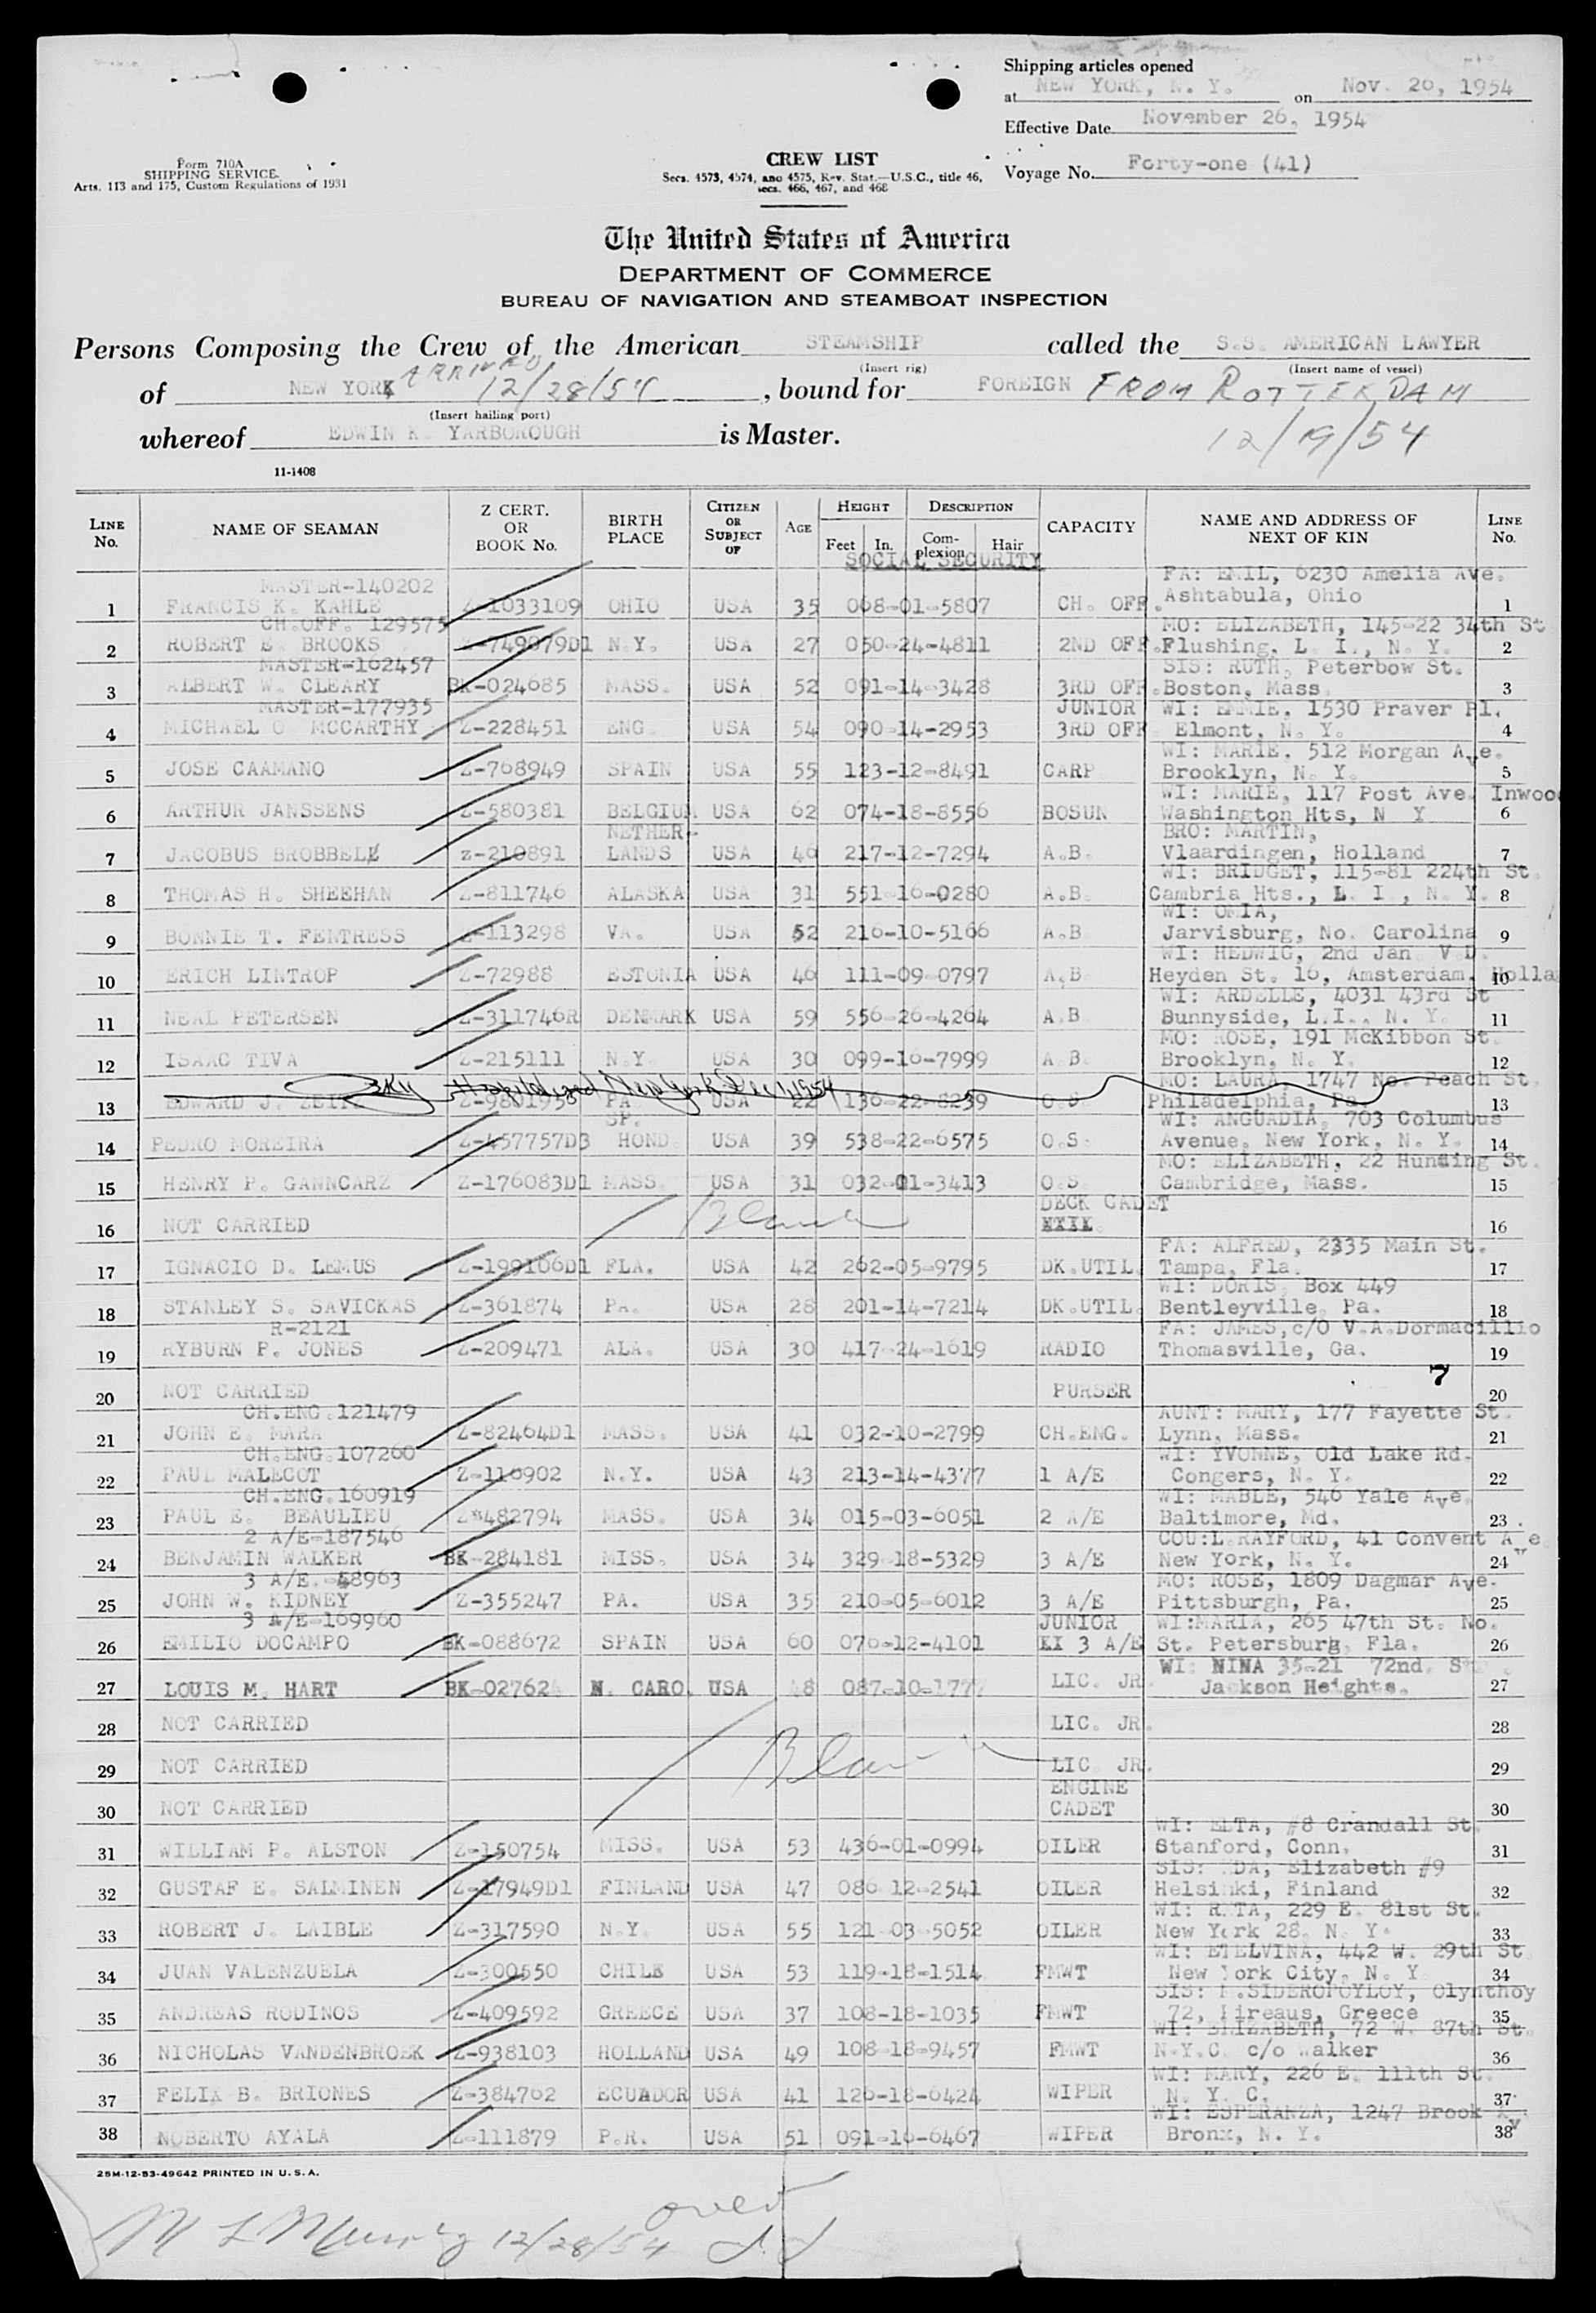 Shipping articles opened
at NEW YORK, N. Y. on Nov. 26, 1954
Effective Date November 26, 1954
Voyage No. Forty-one (41)
Form 710A
SHIPPING SERVICE
Arts. 113 and 175, Custom Regulations of 1931
CREW LIST
Secs. 4573, 4574, and 4575, Rev. Stat.—U.S.C., title 46,
secs. 466, 467, and 468
The United States of America
DEPARTMENT OF COMMERCE
BUREAU OF NAVIGATION AND STEAMBOAT INSPECTION
Persons Composing the Crew of the American STEAMSHIP called the S.S. AMERICAN LAWYER
(Insert rig) (Insert name of vessel)
of NEW YORK ARRIVED 12/28/54, bound for FOREIGN FROM ROTTERDAM
(Insert hailing port)
whereof EDWIN K. YARBOROUGH is Master. 12/19/54
11-1408
LINE No. NAME OF SEAMAN Z CERT. OR BOOK No. BIRTH PLACE CITIZEN OR SUBJECT OF AGE HEIGHT Feet In. DESCRIPTION Complexion Hair CAPACITY NAME AND ADDRESS OF NEXT OF KIN LINE No.
SOCIAL SECURITY
MASTER-140202 FA: EMIL, 6230 Amelia Ave.
1 FRANCIS K. KAHLE Z-1033109 OHIO USA 35 068-01-5807 CH. OFF. Ashtabula, Ohio 1
CH.OFF. 129575 MO: ELIZABETH, 145-22 34th St
2 ROBERT E. BROOKS Z-749079D1 N.Y. USA 27 050-24-4811 2ND OFF. Flushing, L. I., N. Y. 2
MASTER-162457 SIS: RUTH, Peterbow St.
3 ALBERT W. CLEARY BK-024685 MASS. USA 52 091-14-3428 3RD OFF. Boston, Mass 3
MASTER-177935 JUNIOR WI: EMMIE, 1530 Praver Pl.
4 MICHAEL O MCCARTHY Z-228451 ENG USA 54 090-14-2953 3RD OFF Elmont, N. Y. 4
WI: MARIE, 512 Morgan Ave.
5 JOSE CAAMANO Z-768949 SPAIN USA 55 123-12-8491 CARP Brooklyn, N. Y. 5
WI: MARIE, 117 Post Ave. Inwood
6 ARTHUR JANSSENS Z-580381 BELGIUM USA 62 074-18-8556 BOSUN Washington Hts, N Y 6
NETHER- BRO: MARTIN,
7 JACOBUS BROBBEL Z-210891 LANDS USA 46 217-12-7294 A.B. Vlaardingen, Holland 7
WI: BRIDGET, 115-81 224th St.
8 THOMAS H. SHEEHAN Z-811746 ALASKA USA 31 551-16-0280 A.B. Cambria Hts., L. I., N. Y. 8
WI: OMIA,
9 BONNIE T. FENTRESS Z-113298 VA. USA 52 216-10-5166 A.B Jarvisburg, No. Carolina 9
WI: HEDWIG, 2nd Jan V D.
10 ERICH LINTROP Z-72988 ESTONIA USA 46 111-09-0797 A.B Heyden St. 16, Amsterdam, Holla 10
WI: ARDELLE, 4031 43rd St
11 NEAL PETERSEN Z-311746R DENMARK USA 59 556-26-4264 A.B Bunnyside, L.I., N. Y. 11
MO: ROSE, 191 McKibbon St.
12 ISAAC TIVA Z-215111 N.Y USA 30 099-16-7999 A B. Brooklyn, N. Y. 12
EKY Hospitalized New York Dec 1, 1954 MO: LAURA, 1747 No. Peach St.
13 EDWARD J. Z-9801956 PA USA 22 136-22-8239 O.S Philadelphia, Pa. 13
SP. WI: ANGUADIA, 703 Columbus
14 PEDRO MOREIRA Z-457757D3 HOND. USA 39 538-22-6575 O.S Avenue, New York, N. Y. 14
MO: ELIZABETH, 22 Hunting St.
15 HENRY P. GANNCARZ Z-176083D1 MASS. USA 31 032-01-3413 O.S. Cambridge, Mass. 15
DECK CADET
16 NOT CARRIED Blank 16
FA: ALFRED, 2335 Main St.
17 IGNACIO D. LEMUS Z-199106D1 FLA. USA 42 262-05-9795 DK.UTIL. Tampa, Fla. 17
WI: DORIS, Box 449
18 STANLEY S. SAVICKAS Z-361874 PA. USA 28 201-14-7214 DK.UTIL. Bentleyville, Pa. 18
R-2121 FA: JAMES, c/o V.A.Dormacillio
19 RYBURN P. JONES Z-209471 ALA. USA 30 417-24-1619 RADIO Thomasville, Ga. 19
7
20 NOT CARRIED PURSER 20
CH.ENG.121479 AUNT: MARY, 177 Fayette St.
21 JOHN E. MARA Z-82464D1 MASS. USA 41 032-10-2799 CH.ENG. Lynn, Mass. 21
CH.ENG.107260 WI: YVONNE, Old Lake Rd.
22 PAUL MALECOT Z-116902 N.Y. USA 43 213-14-4377 1 A/E Congers, N. Y. 22
CH.ENG.160919 WI: MABLE, 546 Yale Ave.
23 PAUL E. BEAULIEU Z-482794 MASS. USA 34 015-03-6051 2 A/E Baltimore, Md. 23
2 A/E-187546 COU:L.RAYFORD, 41 Convent Ave
24 BENJAMIN WALKER BK-284181 MISS. USA 34 329-18-5329 3 A/E New York, N. Y. 24
3 A/E. 48963 MO: ROSE, 1809 Dagmar Ave.
25 JOHN W. KIDNEY Z-355247 PA. USA 35 210-05-6012 3 A/E Pittsburgh, Pa. 25
3 A/E-169960 JUNIOR WI:MARIA, 265 47th St. No.
26 EMILIO DOCAMPO BK-088672 SPAIN USA 60 076-12-4101 3 A/E St. Petersburg, Fla. 26
WI: NINA 35-21 72nd. St
27 LOUIS M. HART BK-02762 N. CARO. USA 087-10-177 LIC. JR. Jackson Heights. 27
28 NOT CARRIED LIC. JR. 28
29 NOT CARRIED Blank LIC JR. 29
ENGINE
30 NOT CARRIED CADET 30
WI: ELTA, #8 Crandall St.
31 WILLIAM P. ALSTON Z-150754 MISS. USA 53 436-01-0994 OILER Stanford, Conn. 31
SIS: Elizabeth #9
32 GUSTAF E. SALMINEN Z-17949D1 FINLAND USA 47 086-12-2541 OILER Helsinki, Finland 32
WI: RITA, 229 E. 81st St.
33 ROBERT J. LAIBLE Z-317590 N.Y. USA 55 121-03-5052 OILER New York 28, N. Y. 33
WI: ETELVINA, 442 W. 29th St
34 JUAN VALENZUELA Z-300550 CHILE USA 53 119-18-1514 FMWT New York City, N. Y 34
SIS: Olynthoy
35 ANDREAS RODINOS Z-409592 GREECE USA 37 108-18-1035 FMWT 72, Pireaus, Greece 35
WI: ELIZABETH, 72 W. 87th St.
36 NICHOLAS VANDENBROEK Z-938103 HOLLAND USA 49 108-18-9457 FMWT N.Y.C. c/o Walker 36
WI: MARY, 226 E. 111th St.
37 FELIX B. BRIONES Z-384762 ECUADOR USA 41 126-18-6424 WIPER N. Y. C. 37
WI: ESPERANZA, 1247 Brook
38 NOBERTO AYALA Z-111879 P.R. USA 51 091-16-6467 WIPER Bronx, N. Y. 38
25M-12-53-49642 PRINTED IN U.S.A.
over
12/28/54